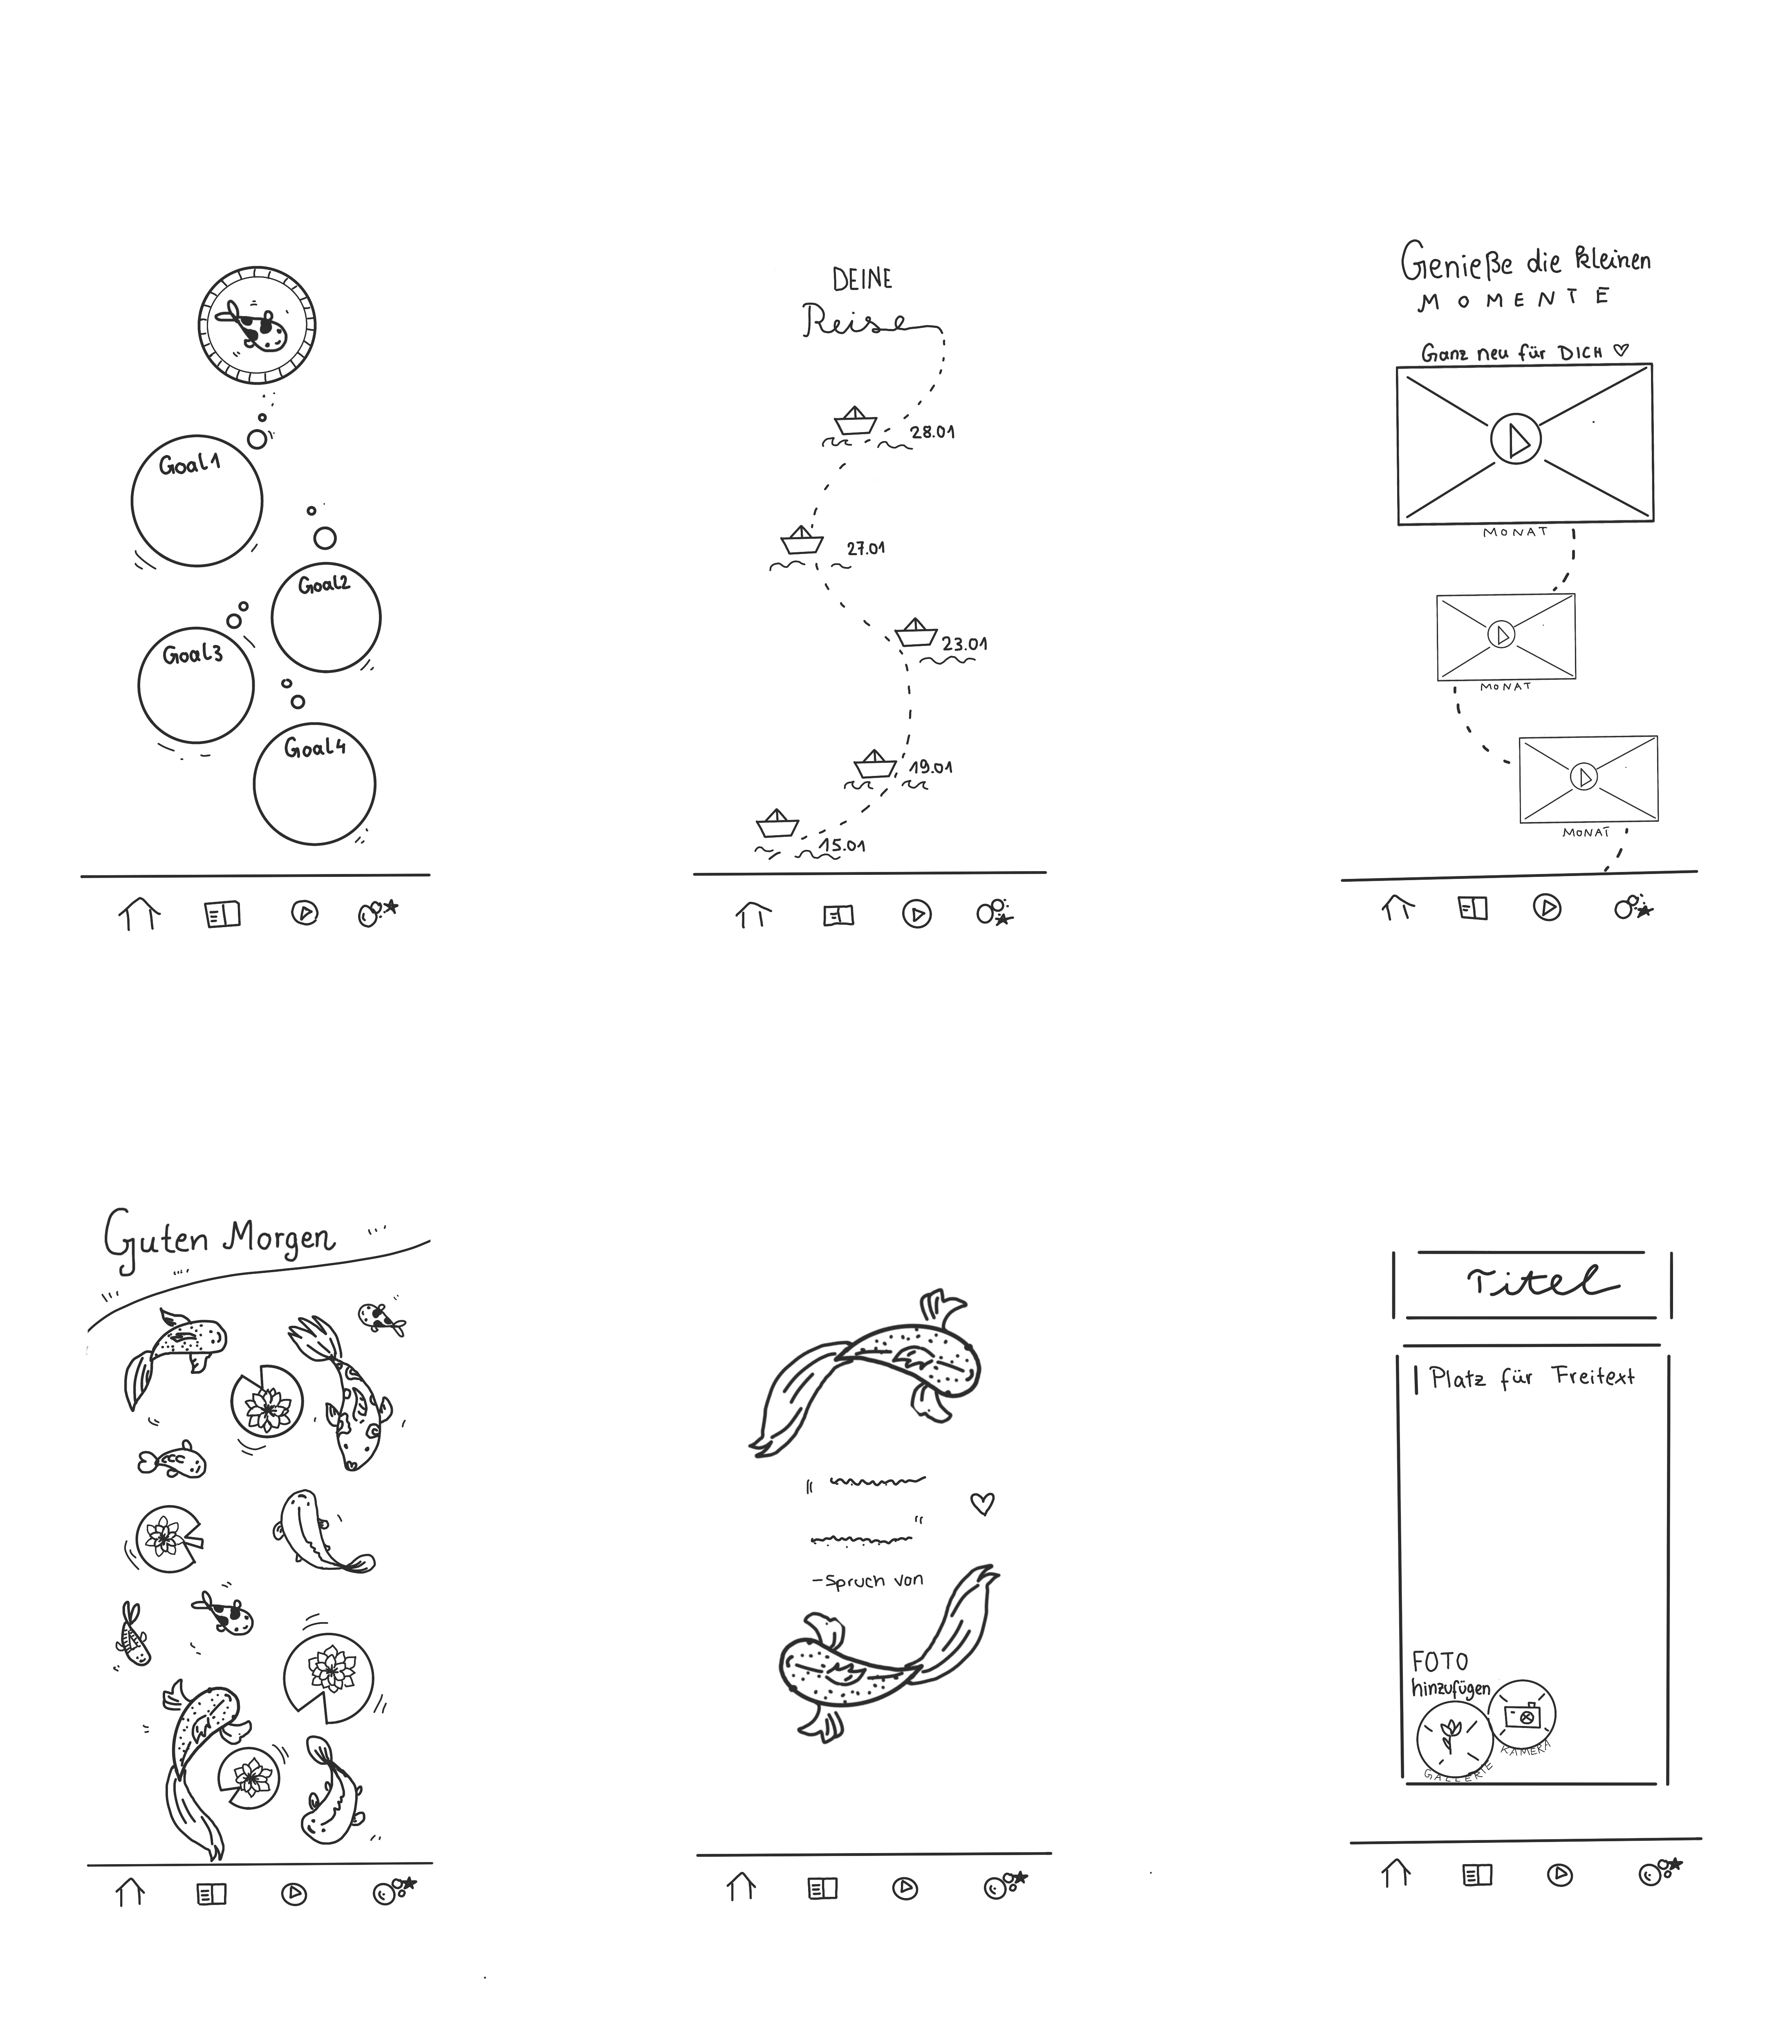 Goal1
Goal2
Goal3
Goal4
DEINE
Reise
28.01
27.01
23.01
19.01
15.01
Genieße die kleinen
MOMENTE
Ganz neu für DICH ♡
MONAT
MONAT
MONAT
Guten Morgen
-Spruch von
Titel
Platz für Freitext
FOTO
hinzufügen
KAMERA
GALLERIE